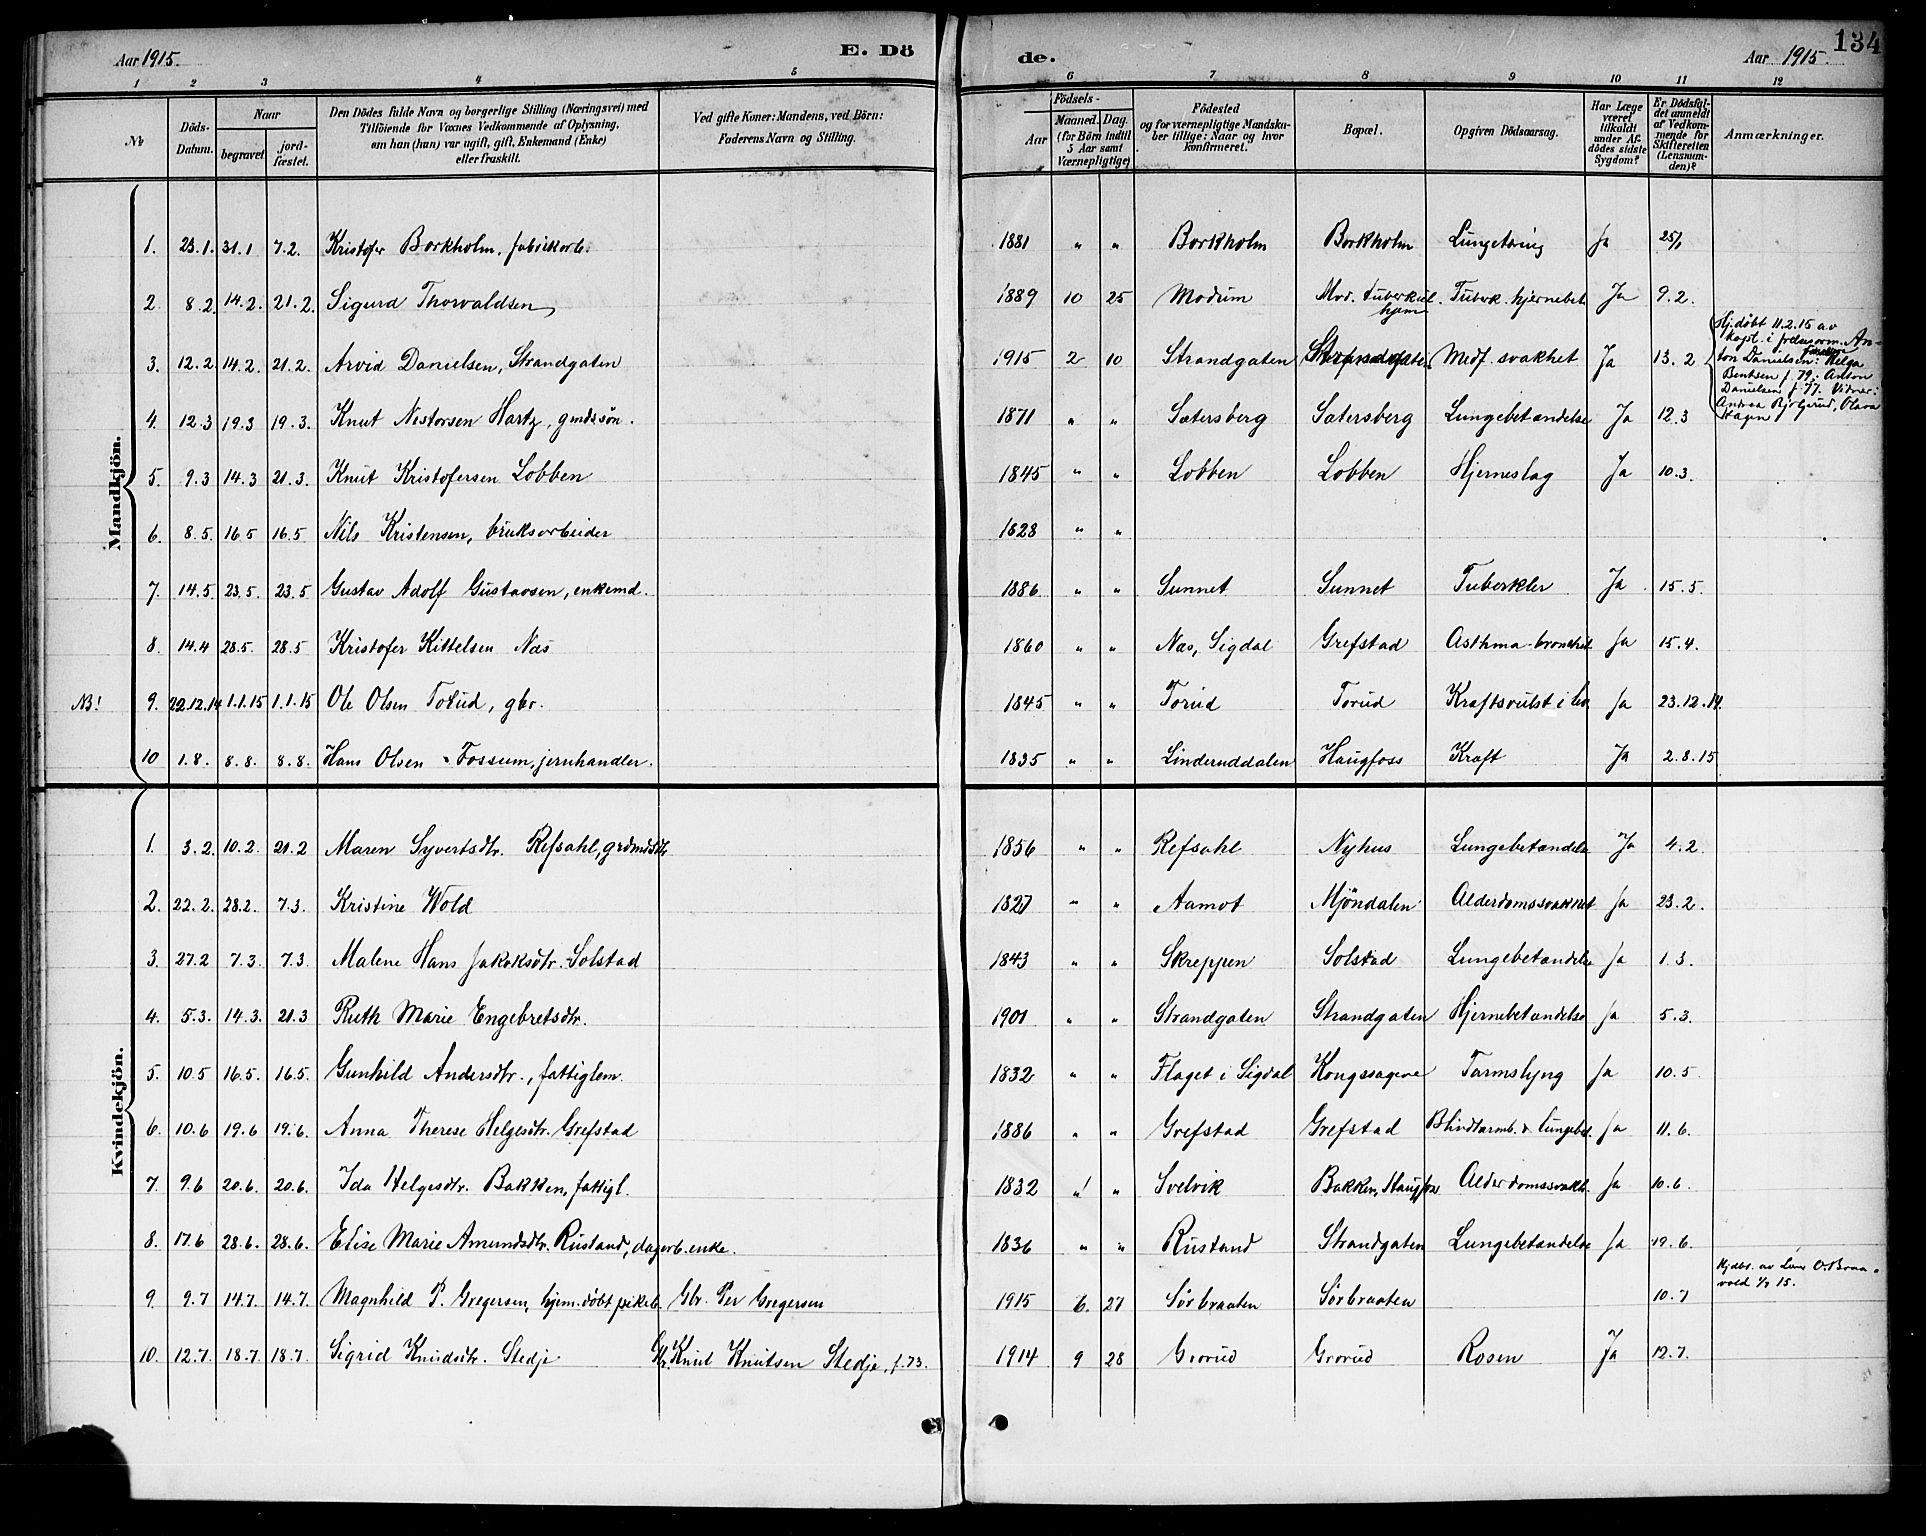 Aar 1915. E. Dö de. Aar 1915. 134
1 2 3 4 5 6 7 8 9 10 11 12
No
Döds-Datum.
Naar
begravet.
jord-fæstet.
Den Dödes fulde Navn og borgerlige Stilling (Næringsvei) med
Tilföiende for Voxnes Vedkommende af Oplysning,
om han (hun) var ugift, gift, Enkemand (Enke)
eller fraskilt.
Ved gifte Koner: Mandens, ved Börn:
Faderens Navn og Stilling.
Födsels-
Aar
Maaned. Dag.
(for Börn indtil
5 Aar samt
Værnepligtige)
Födested
og for værnepligtige Mandska-
ber tillige: Naar og hvor
konfirmeret.
Bopæl.
Opgiven Dödsaarsag.
Har Læge
været
tilkaldt
under Af-
dödes sidste
Sygdom?
Er Dödsfal-
det anmeldt
af Vedkom-
mende for
Skifteretten
(Lensman-
den)?
Anmærkninger.
Mandkjön.
1. 23.1. 31.1 7.2. Kristofer Borkholm, fabrikarb. 1881 " " Borkholm Borkholm Lungetæring Ja 25/1
2 8.2 14.2. 21.2. Sigurd Thorvaldsen 1889 10 25 Modum Mod. Tuberkul hjem Tuberk. hjernebet. Ja 9.2.
3. 12.2 14.2. 21.2. Arvid Danielsen, Strandgaten 1915 2 10 Strandgaten Strandgaten Medf. svakhet Ja 13.2 Hj.døbt 11.2.15 av kapt. i frelsesarm. Anton Danielsen. Forældre: Helga Bentsen f 79. Anton Danielsen f 77. Vidner: Andrea, Olava Hagen
4. 12.3 19.3 19.3. Knut Nestorsen Hartz, grdssøn. 1871 " " Sætersberg Sætersberg Lungebetændelse Ja 12.3
5. 9.3 14.3 21.3. Knut Kristofersen Lobben 1845 " " Lobben Lobben Hjerneslag Ja 10.3.
6. 8.5. 16.5 16.5 Nils Kristensen, bruksarbeider 1828 " "
7. 14.5 23.5. 23.5 Gustav Adolf Gustavsen, enkemd. 1886 " " Sunnet Sunnet Tuberkler Ja 15.5.
8. 14.4 28.5. 28.5 Kristofer Kittelsen Næs 1860 " " Næs, Sigdal Grefstad Asthma-bronchit Ja 15.4.
NB! 9. 22.12.14 1.1.15 1.1.15 Ole Olsen Torud, gbr. 1845 " " Torud Torud Kraftsvulst i lev. Ja 23.12.14.
10 1.8. 8.8. 8.8. Hans Olsen Fossum, jernhandler. 1835 " " Linderuddalen Haugfoss Kraft Ja 2.8.15
Kvindekjön.
1. 3.2. 10.2. 21.2 Maren Syvertsdtr. Refsahl, grdmdsdtr 1856 " " Refsahl Nyhus Lungebetændelse Ja 4.2
2. 22.2. 28.2. 7.3. Kristine Wold 1827 " " Aamot Mjöndalen Alderdomssvakhet Ja 23.2.
3. 27.2 7.3. 7.3. Malene Hans Jakoksdtr. Solstad 1843 " " Skreppen Solstad Lungebetændelse Ja 1.3.
4. 5.3. 14.3. 21.3 Ruth Marie Engebretsdtr. 1901 " " Strandgaten Strandgaten Hjernebetændelse Ja 5.3.
5. 10.5 16.5. 16.5. Gunhild Andersdtr., fattiglem. 1832 " " Flaget i Sigdal Kongssagene Tarmslyng Ja 10.5
6. 10.6 19.6 19.6. Anna Therese Helgesdtr. Grefstad 1886 " " Grefstad Grefstad Blindtarmb. & lungebet. Ja 11.6.
7. 9.6 20.6. 20.6. Ida Helgesdtr. Bakken, fattigl. 1832 " " Svelvik Bakken, Haugfoss Alderdomssvakh. Ja 10.6.
8. 17.6 28.6. 28.6. Elise Marie Amundsdtr. Rustand, dagarb. enke. 1836 " " Rustand Strandgaten Lungebetændelse Ja 19.6.
9. 9.7 14.7. 14.7. Magnhild P. Gregersen, hjem.døbt pikeb. Gbr. Per Gregersen 1915 6. 27 Sörbraaten Sörbraaten 10.7 Hjdbt. av O. Braavold 1/7 15.
10. 12.7 18.7 18.7. Sigrid Knudsdtr. Stedje Gbr. Knut Knutsen Stedje, f. 73. 1914 9 28 Grorud Grorud Rosen Ja 12.7.